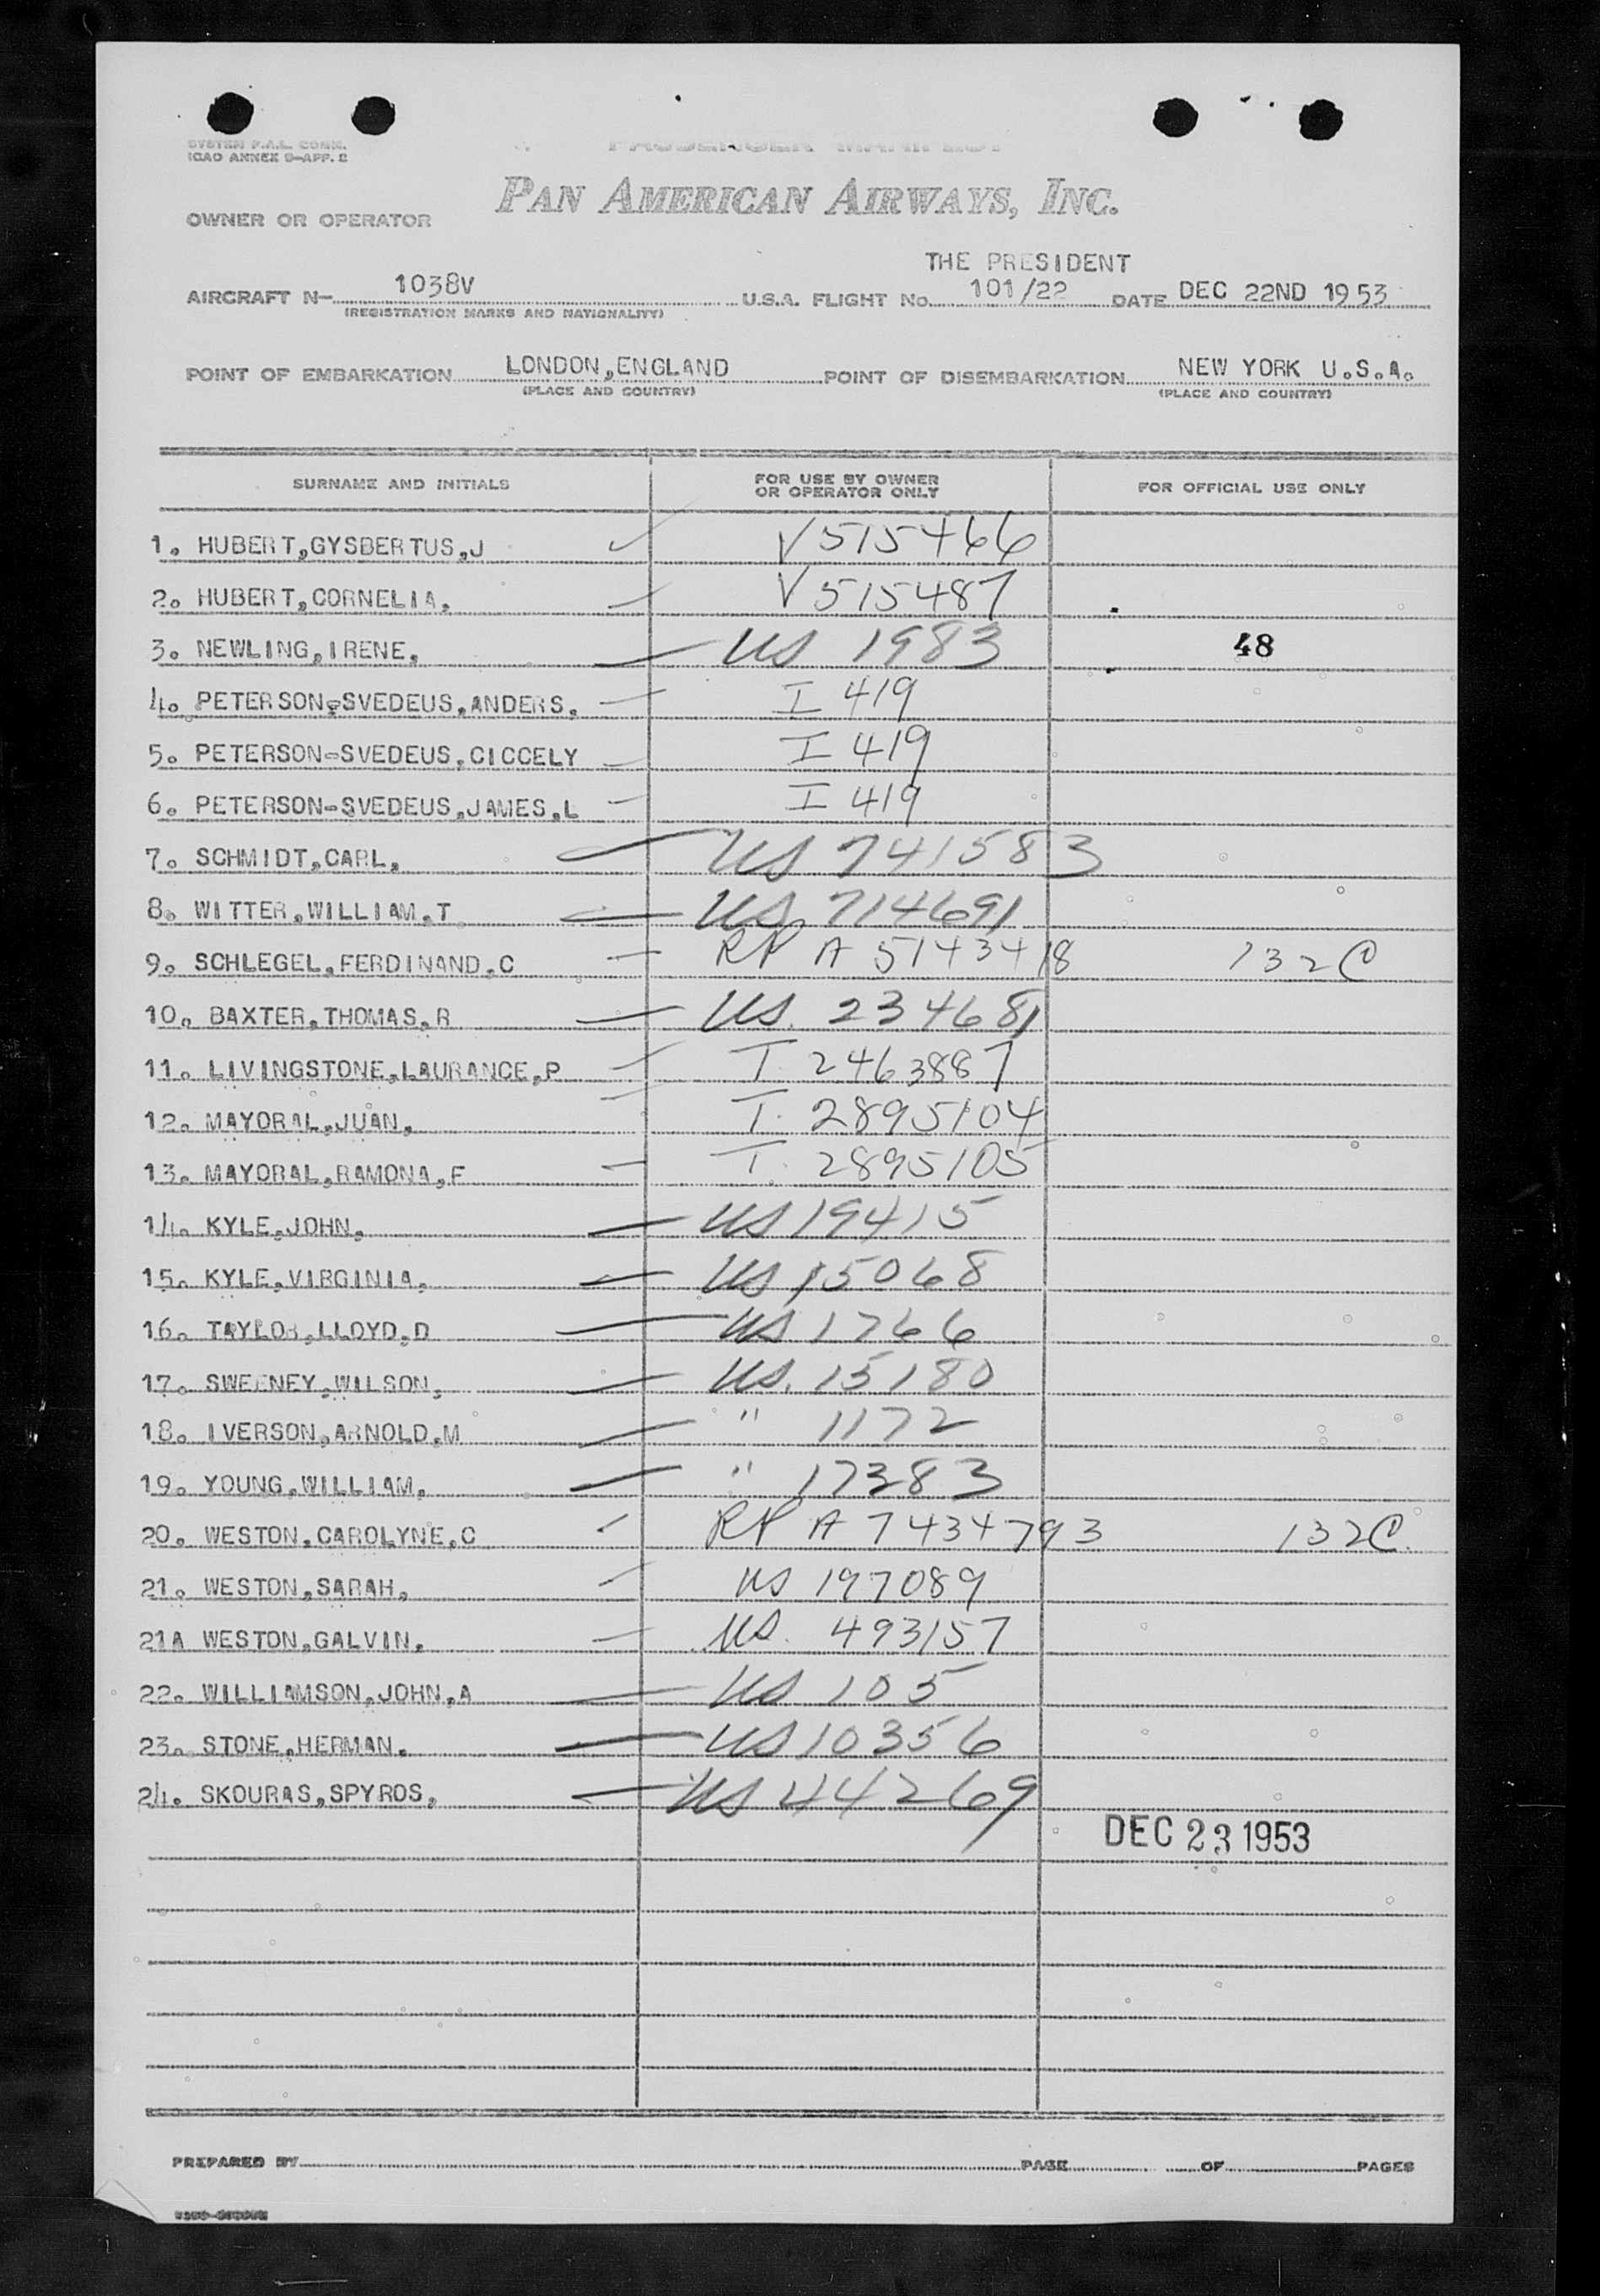 SYSTEM P.A.L. COMN.
ICAO ANNEX 9-APP. E
PASSENGER MANIFEST
PAN AMERICAN AIRWAYS, INC.
OWNER OR OPERATOR
THE PRESIDENT
AIRCRAFT N- 1038V U.S.A. FLIGHT No. 101/22 DATE DEC 22ND 1953
(REGISTRATION MARKS AND NATIONALITY)
POINT OF EMBARKATION LONDON,ENGLAND POINT OF DISEMBARKATION NEW YORK U.S.A.
(PLACE AND COUNTRY) (PLACE AND COUNTRY)
SURNAME AND INITIALS FOR USE BY OWNER OR OPERATOR ONLY FOR OFFICIAL USE ONLY
1. HUBERT,GYSBERTUS,J V 515466
2. HUBERT,CORNELIA. V 515487
3. NEWLING,IRENE. US 1983 48
4. PETERSON-SVEDEUS,ANDERS. I 419
5. PETERSON-SVEDEUS,CICCELY I 419
6. PETERSON-SVEDEUS,JAMES,L I 419
7. SCHMIDT,CARL. US 741583
8. WITTER,WILLIAM.T US 714691
9. SCHLEGEL,FERDINAND.C RP A 5143418 132C
10. BAXTER,THOMAS,R US. 234681
11. LIVINGSTONE,LAURANCE,P T. 2463887
12. MAYORAL,JUAN. T. 2895104
13. MAYORAL,RAMONA,F T. 2895105
14. KYLE,JOHN. US 19415
15. KYLE,VIRGINIA. US 15068
16. TAYLOR,LLOYD,D US 1766
17. SWEENEY,WILSON. US. 15180
18. IVERSON,ARNOLD,M " 1172
19. YOUNG,WILLIAM. " 17383
20. WESTON,CAROLYNE,C RP A 7434793 132C.
21. WESTON,SARAH. US 197089
21A WESTON,GALVIN. US. 493157
22. WILLIAMSON,JOHN,A US 105
23. STONE,HERMAN. US 10356
24. SKOURAS,SPYROS. US 44269
DEC 23 1953
PREPARED BY PAGE OF PAGES